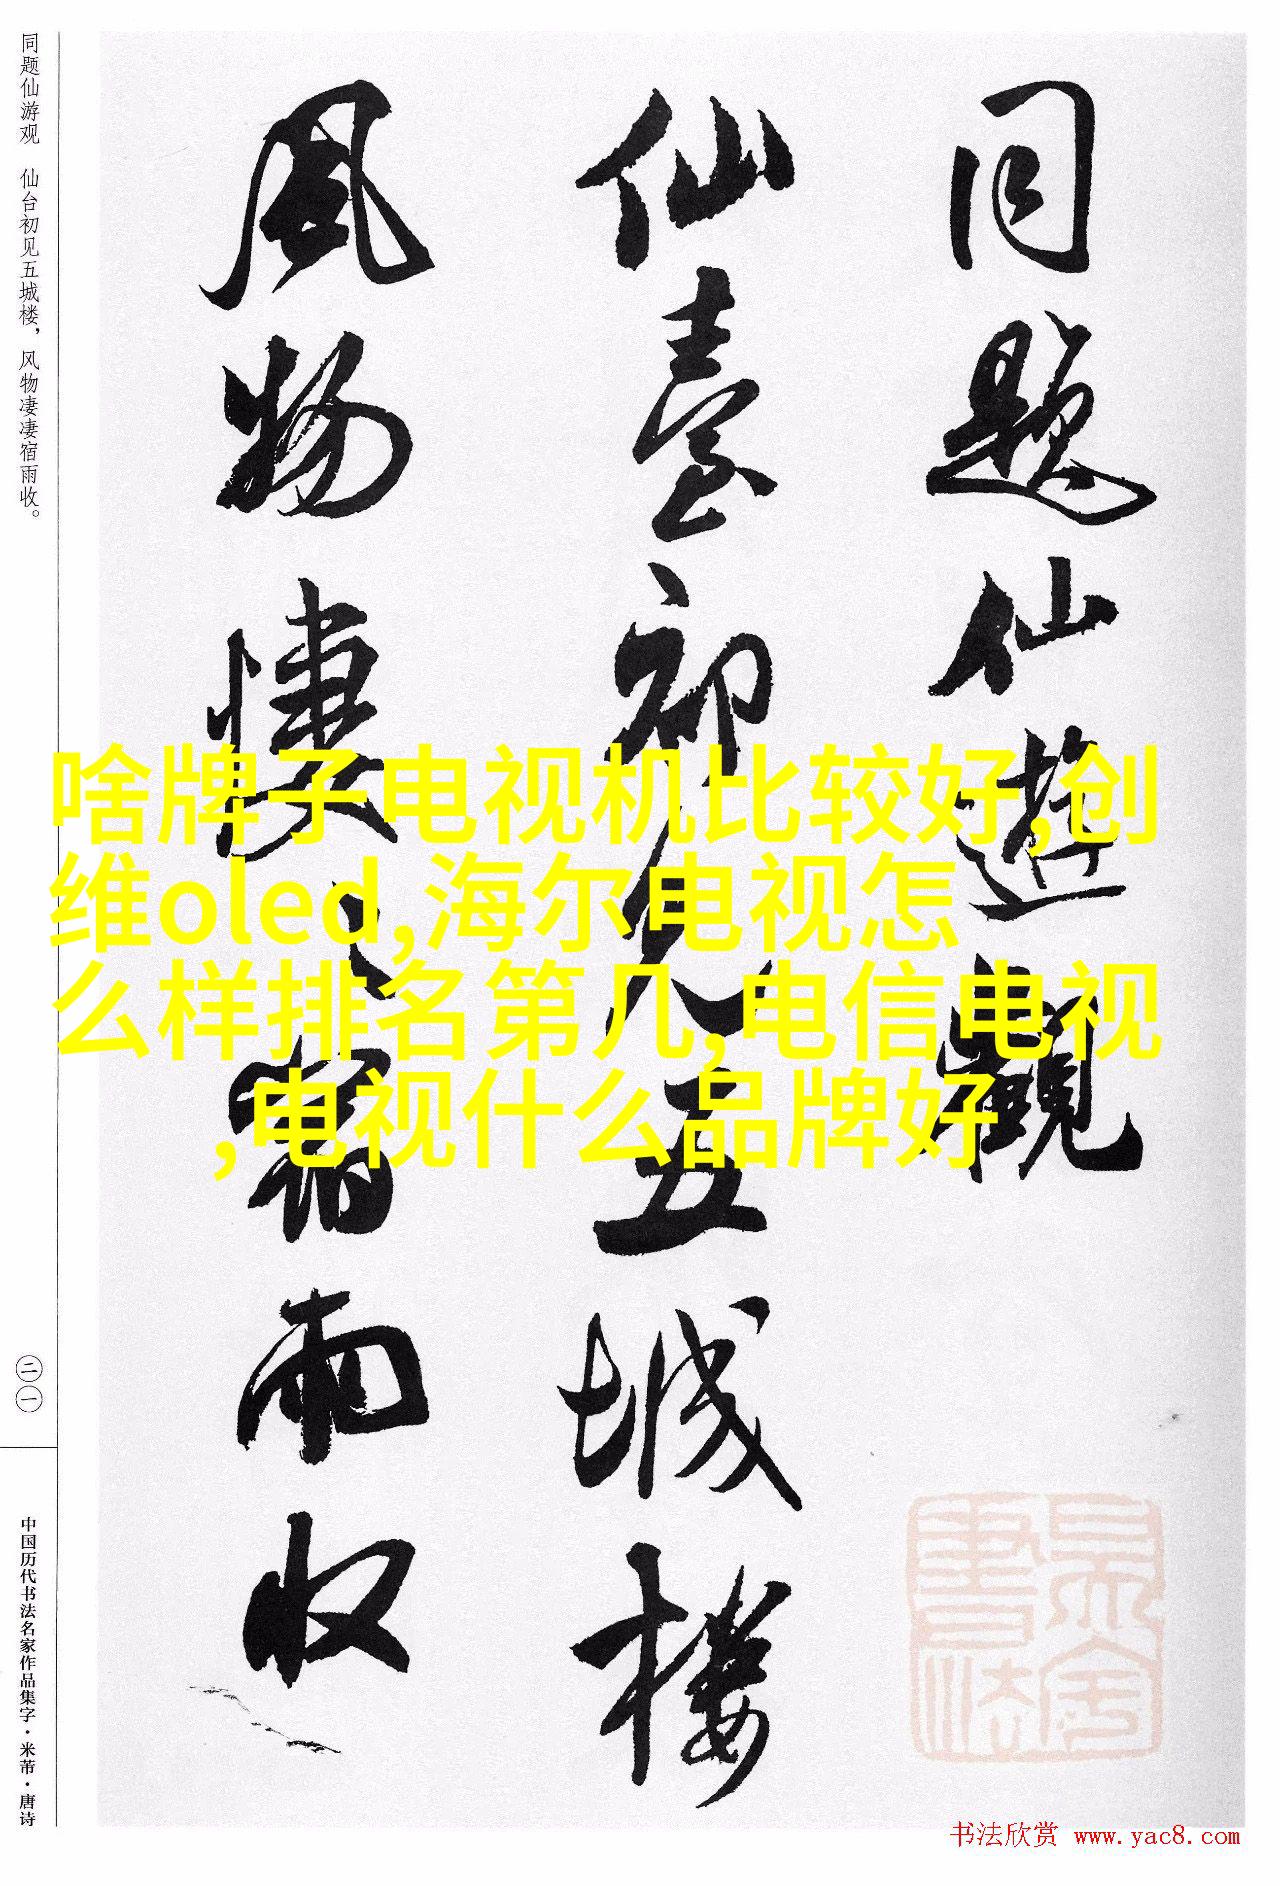 同题仙游观　仙台初见五城楼，风物凄凄宿雨收。
二一
中国历代书法名家作品集字·米芾·唐诗
同題仙遊觀
仙臺初見五城樓
風物悽〻宿雨收
啥牌子电视机比较好,创
维oled,海尔电视怎
么样排名第几,电信电视
,电视什么品牌好
书法欣赏 www.yac8.com